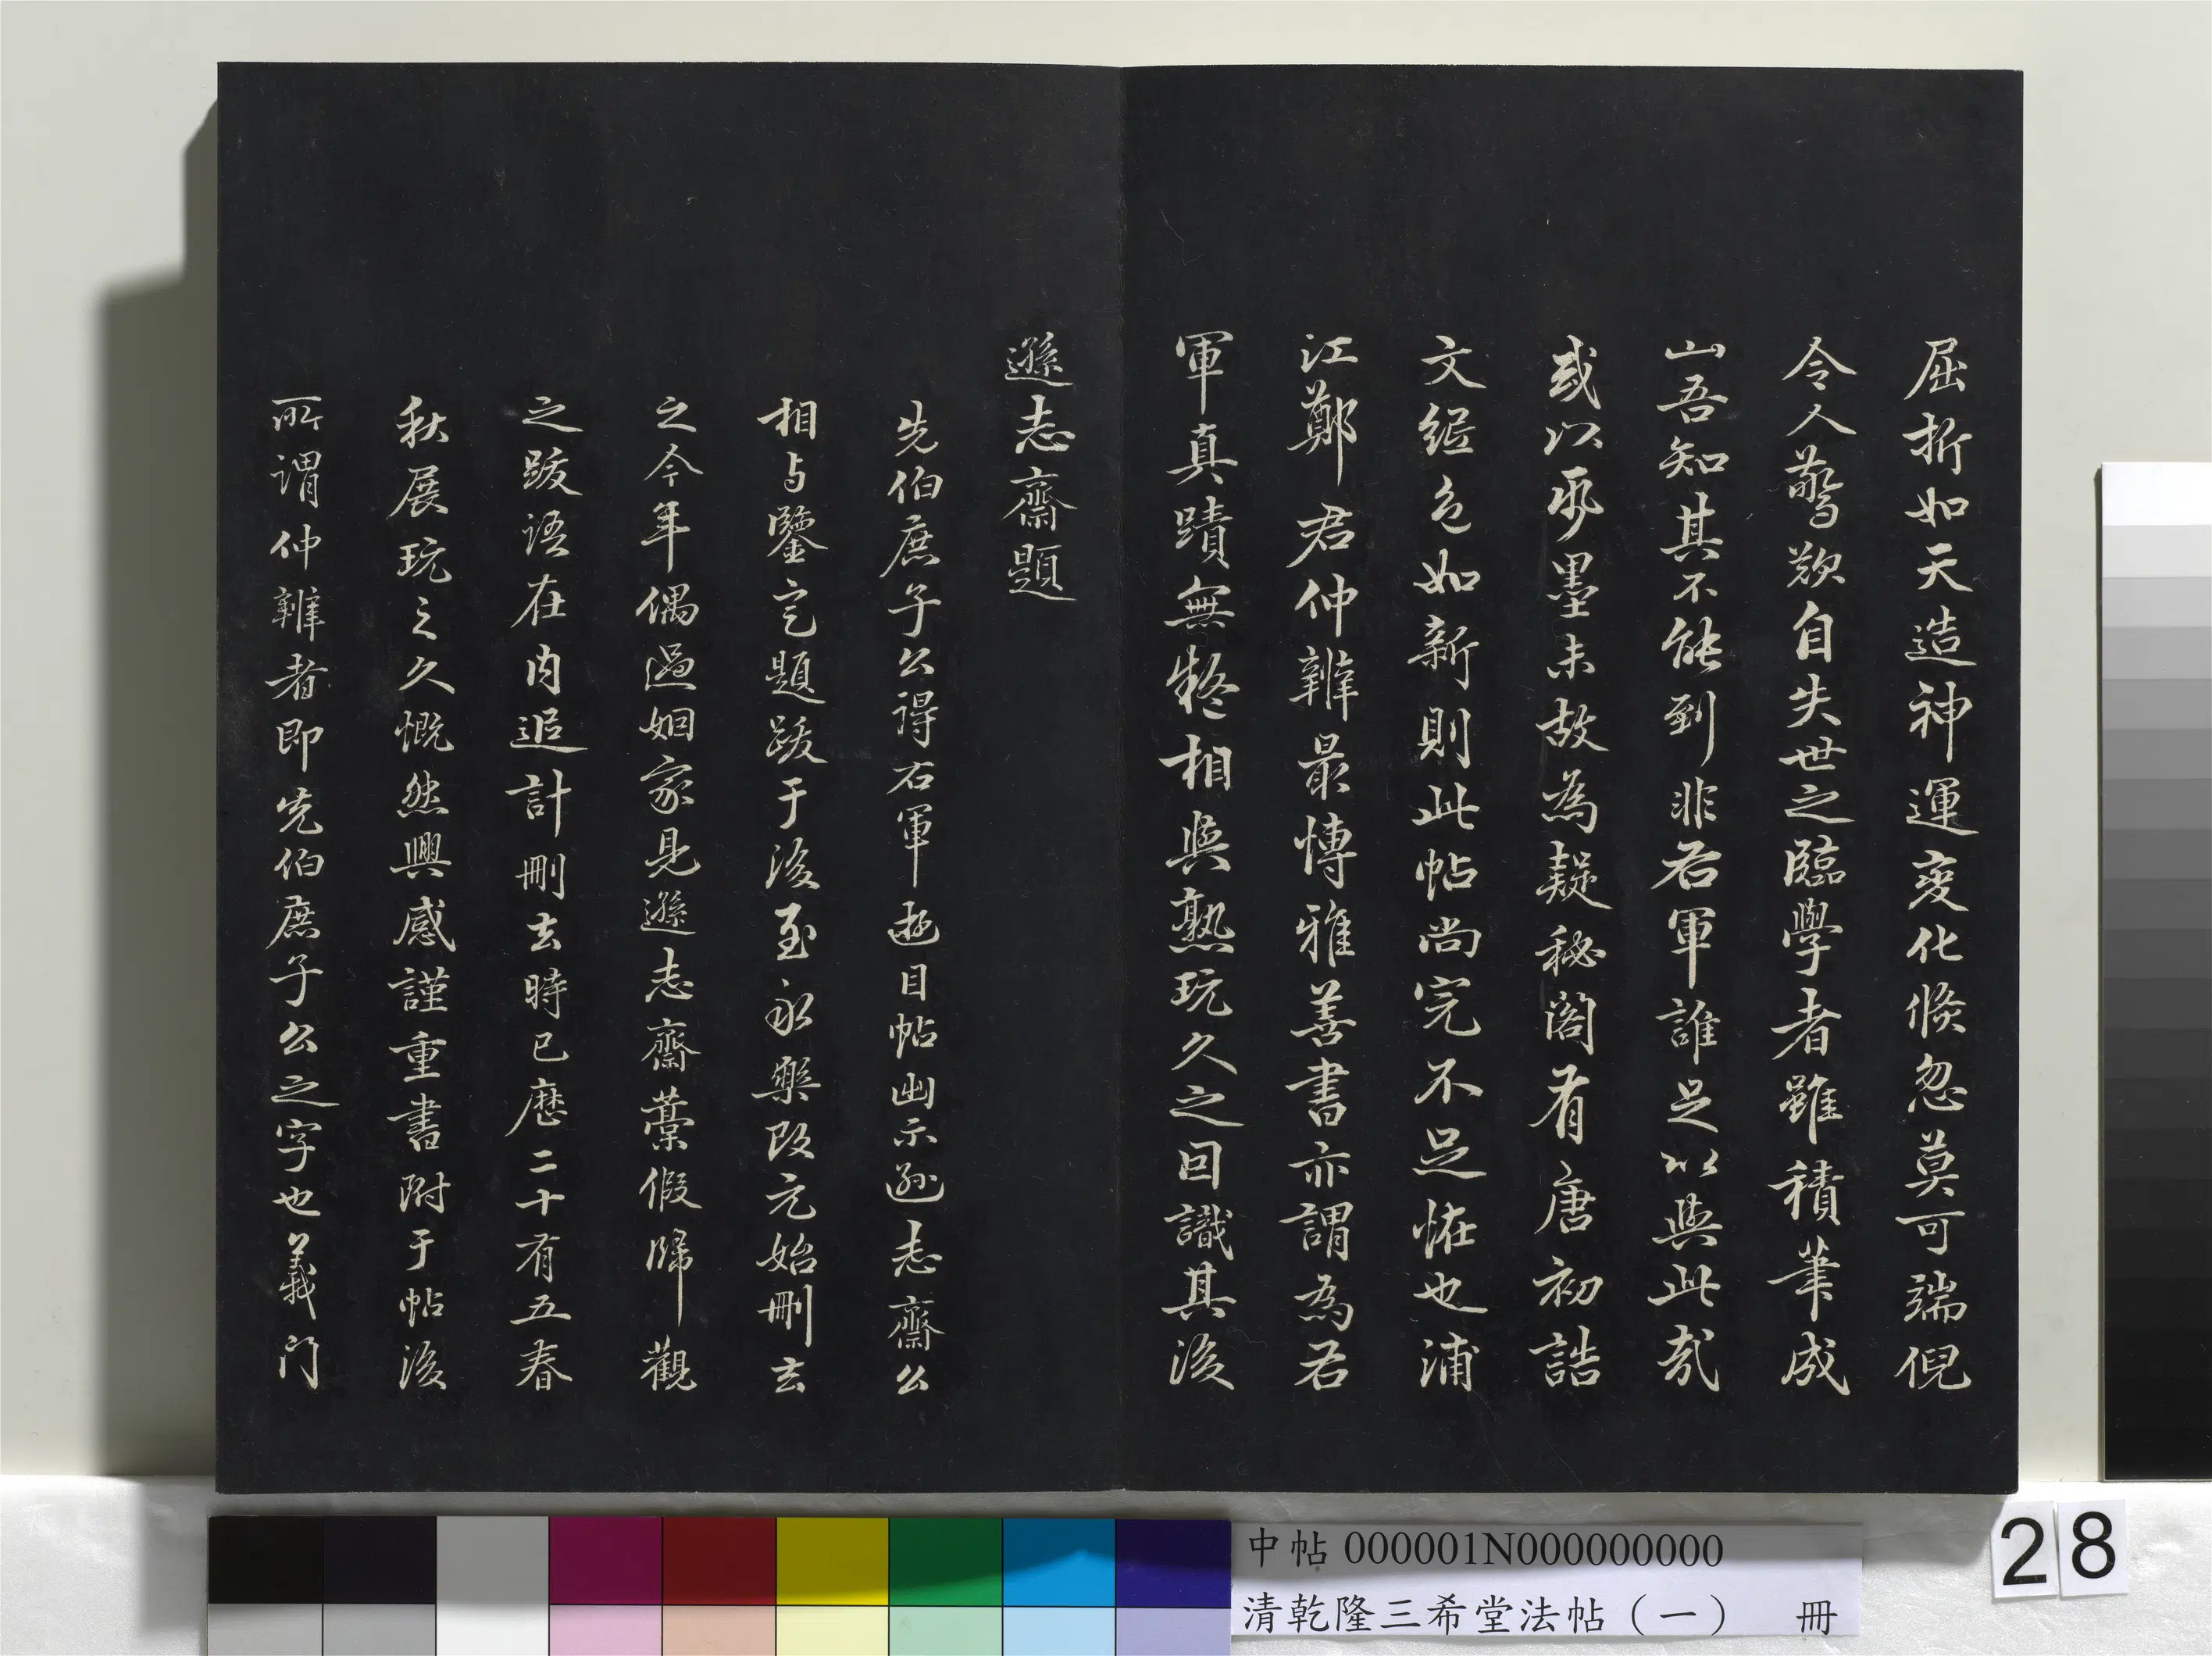 屈折如天造神運變化倐忽莫可端倪
令人驚歎自失世之臨學者雖積筆成
山吾知其不能到非右軍誰足以與此哉
或以紙墨未故為疑秘閣有唐初誥
文縆色如新則此帖尚完不足恠也浦
江鄭君仲辨最博雅善書亦謂為右
軍真蹟無疑相與熟玩久之因識其後
遜志齋題
先伯庶子公得右軍遊目帖幽示遜志齋公
相与鑒定題跋于後至永樂改元始刪去
之今年偶過姻家見遜志齋藁假歸觀
之跋語在内追計刪去時已歷二十有五春
秋展玩之久慨然興感謹重書附于帖後
所謂仲辨者即先伯庶子公之字也義门
中帖 000001N000000000
清乾隆三希堂法帖（一） 冊
28